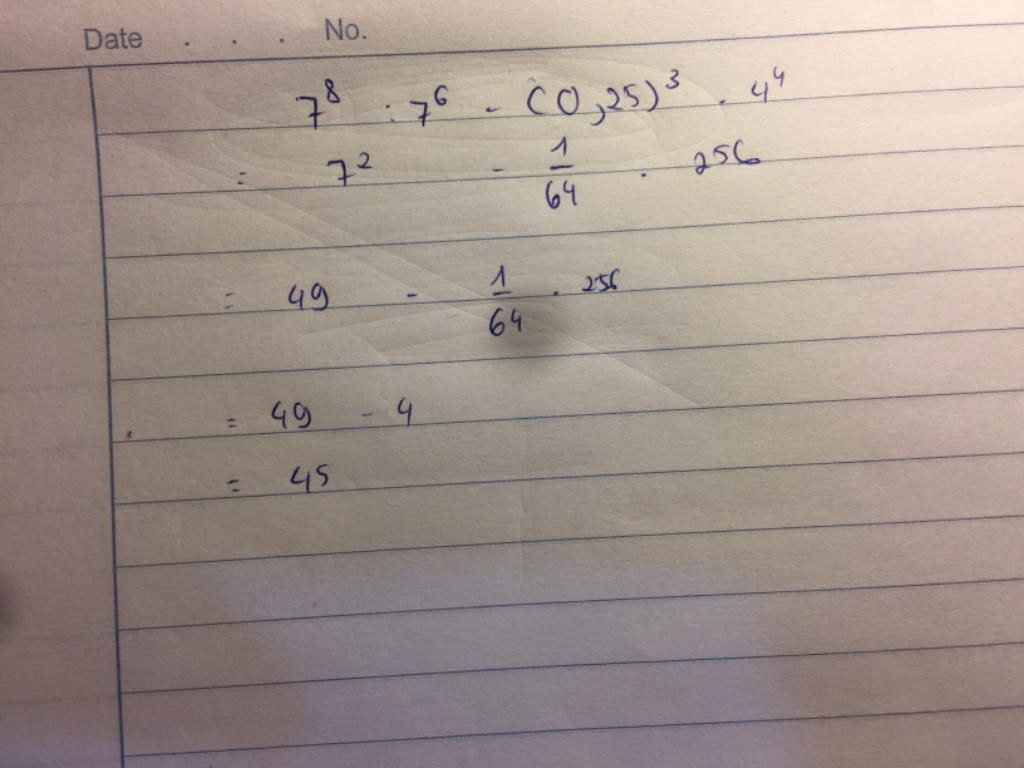 Date . . . No.
7⁸ : 7⁶ - (0,25)³ . 4⁴
= 7² - 1/64 . 256
= 49 - 1/64 . 256
= 49 - 4
= 45